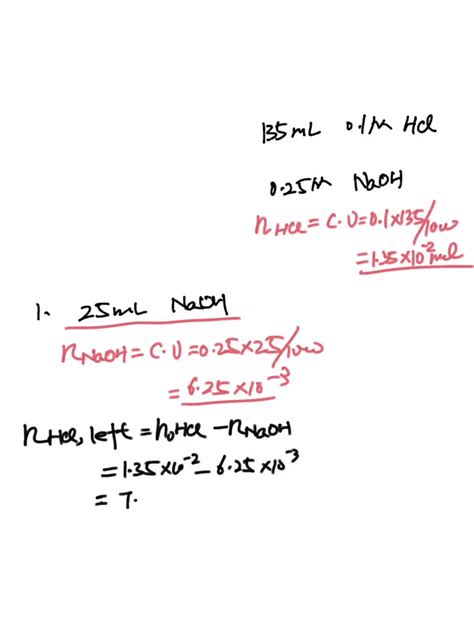 135mL 0.1M HCl
0.25M NaOH
nHCl = C.V = 0.1×135/1000
= 1.35×10⁻² mol
1. 25mL NaOH
nNaOH = C.V = 0.25×25/1000
= 6.25×10⁻³
nHCl, left = n₀HCl - nNaOH
= 1.35×10⁻² - 6.25×10⁻³
= 7.